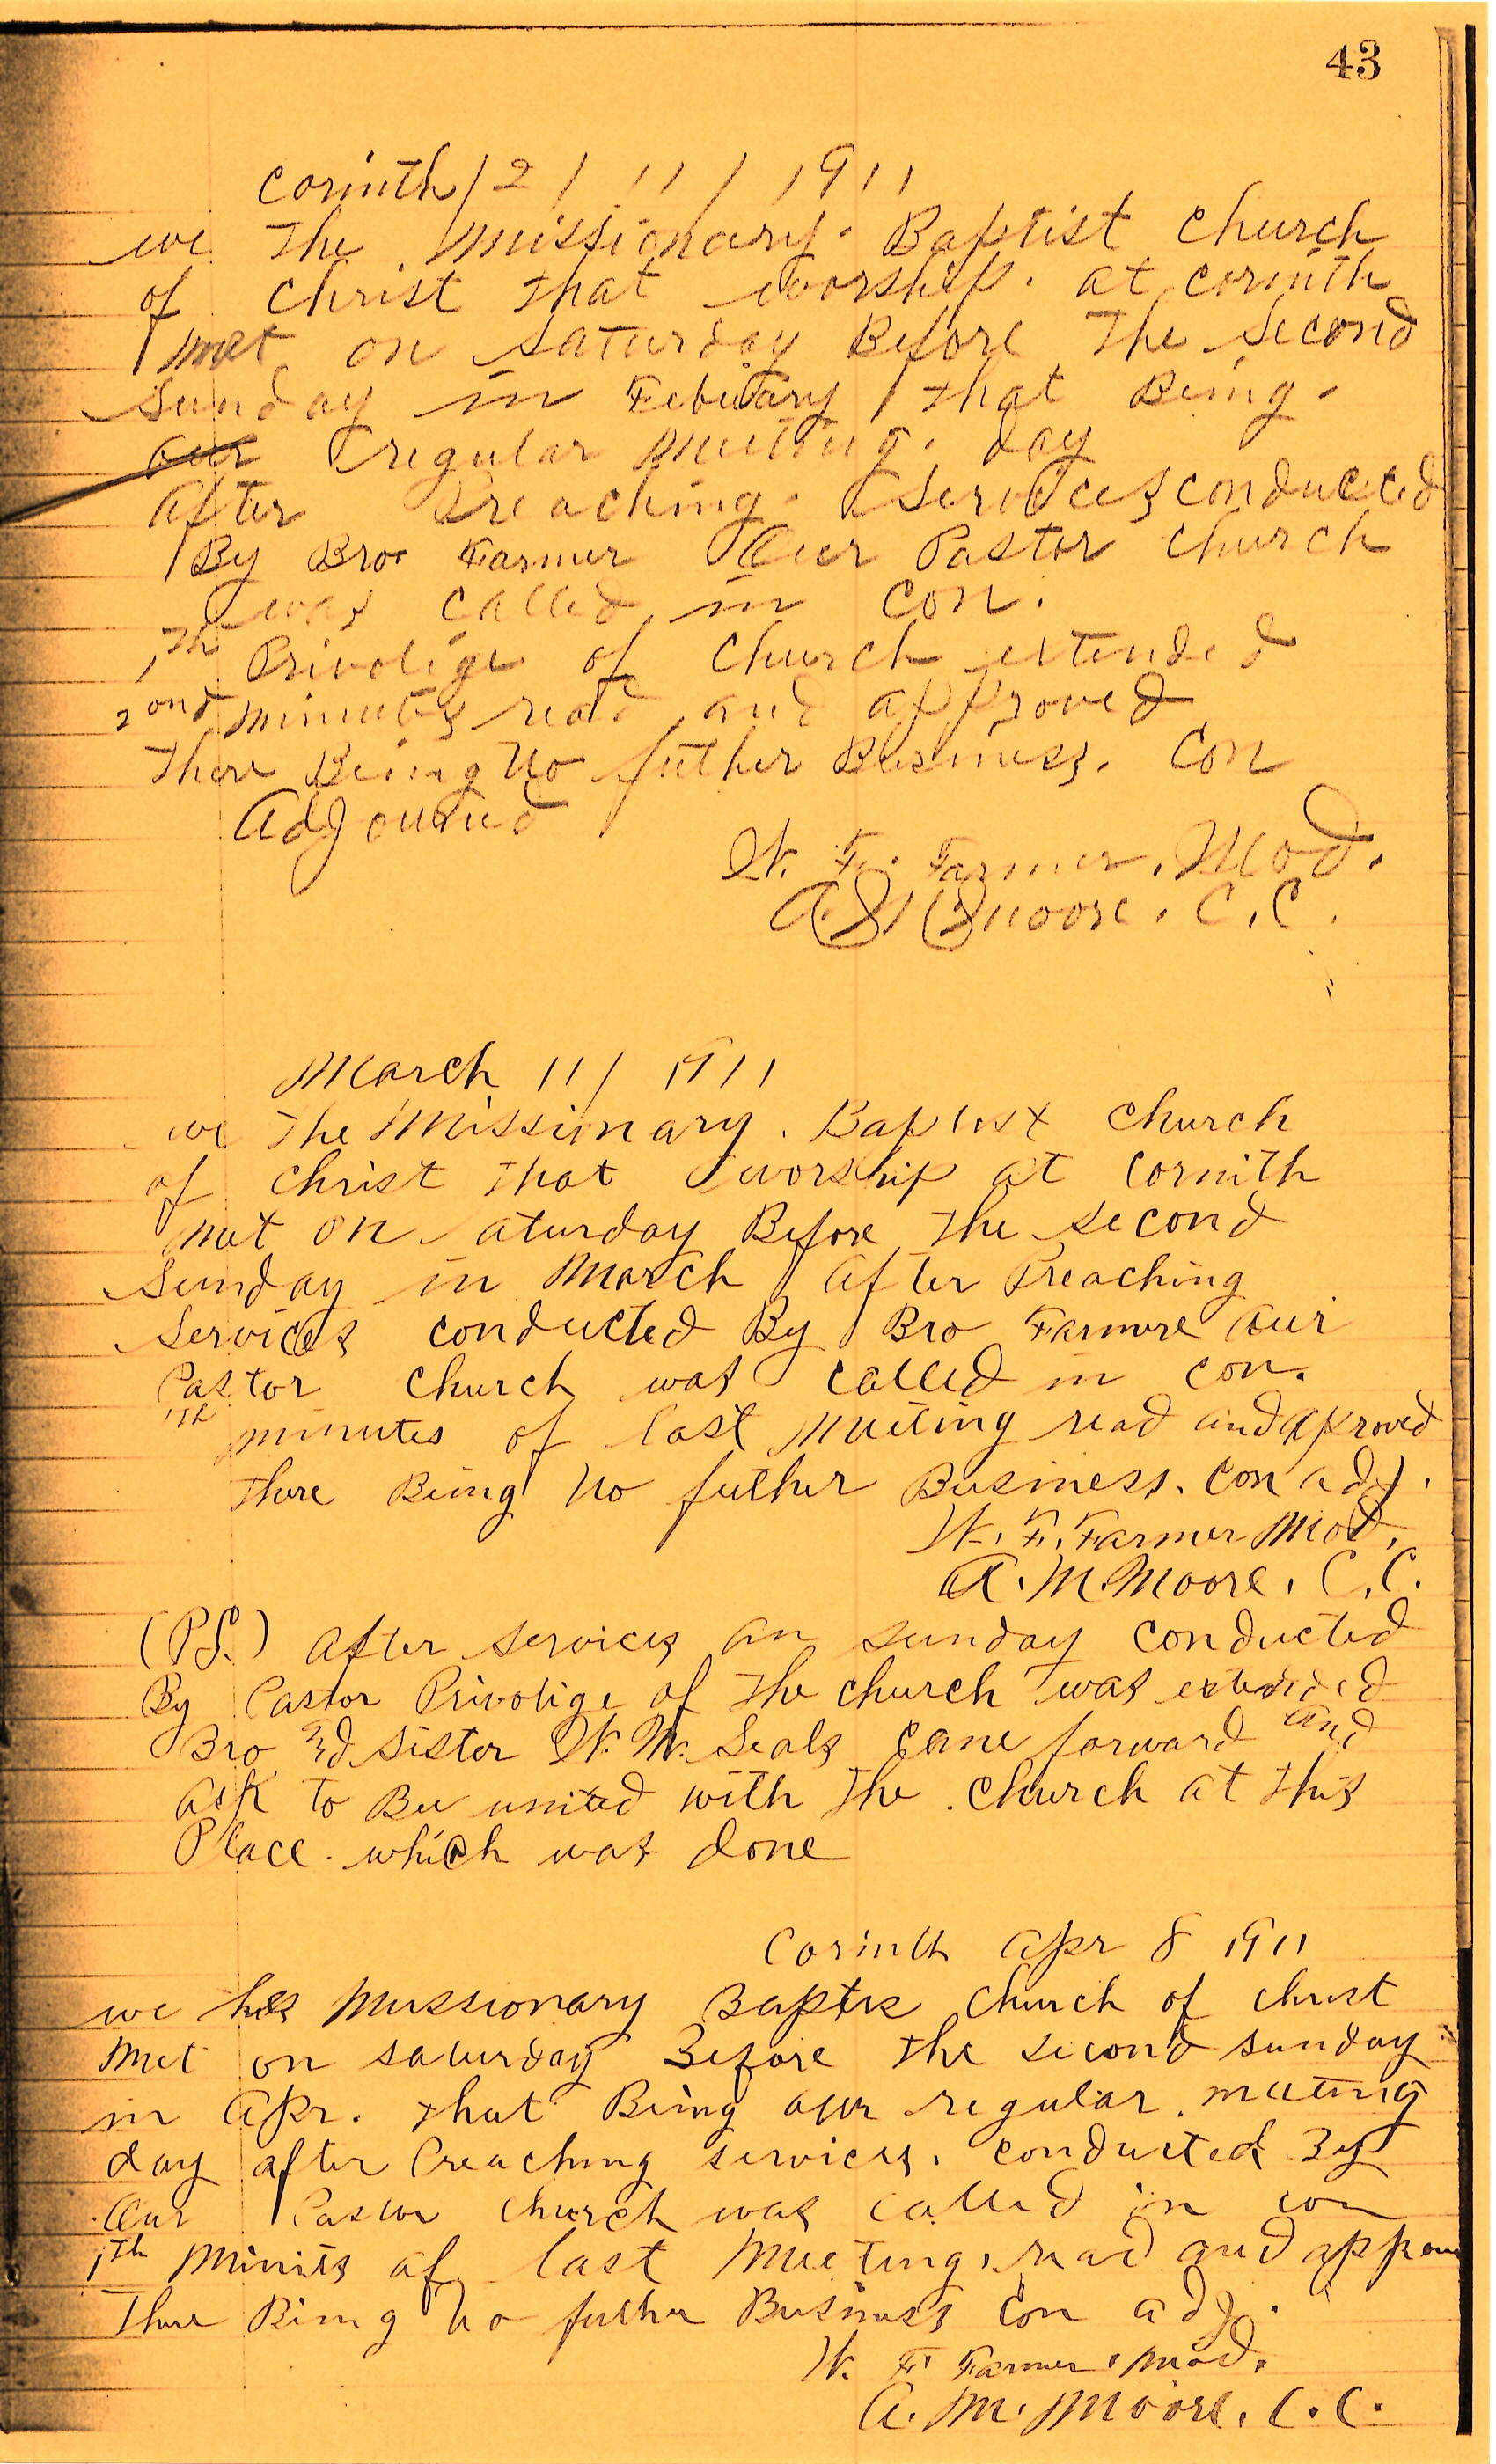 43
Corinth / 2 / 11 / 1911
we the Missionary. Baptist church
of Christ that worship. at Corinth
met on Saturday Before the Second
Sunday in Febuary that Being.
our regular Meeting. day
After Preaching. Services conducted
By Bro. Farmer Our Pastor church
was called in con.
1th Privolige of church extended
2ond minutes read and approved
There Being No futher Business. Con
Adjourned
W. F. Farmer. Mod.
A. M. Moore. C. C.
March 11 / 1911
we the Missionary. Baptist church
of Christ that worship at Cornith
met on Saturday Before the second
Sunday in March After Preaching
Services conducted By Bro Farmere our
Pastor church was called in con.
1th minutes of last meeting read and aproved
there Being no futher Business. con adj.
W. F. Farmer Mod.
A. M. Moore. C. C.
(P.S.) After services on sunday conducted
By Pastor Privolige of the church was extended
Bro nd sister W. M. Seals came forward and
ask to Bee united with the. church at this
Place. which was done
Corinth Apr 8 1911
we Missionary Baptis church of christ
Met on saturday Before the second sunday
in Apr. that Being our regular. meeting
day after Preaching services. conducted By
Our Pastor church was called in con
1th Minits of last Meeting. read and
There Being no futher Business Con adj.
W. F. Farmer. Mod.
A. M. Moore. C. C.